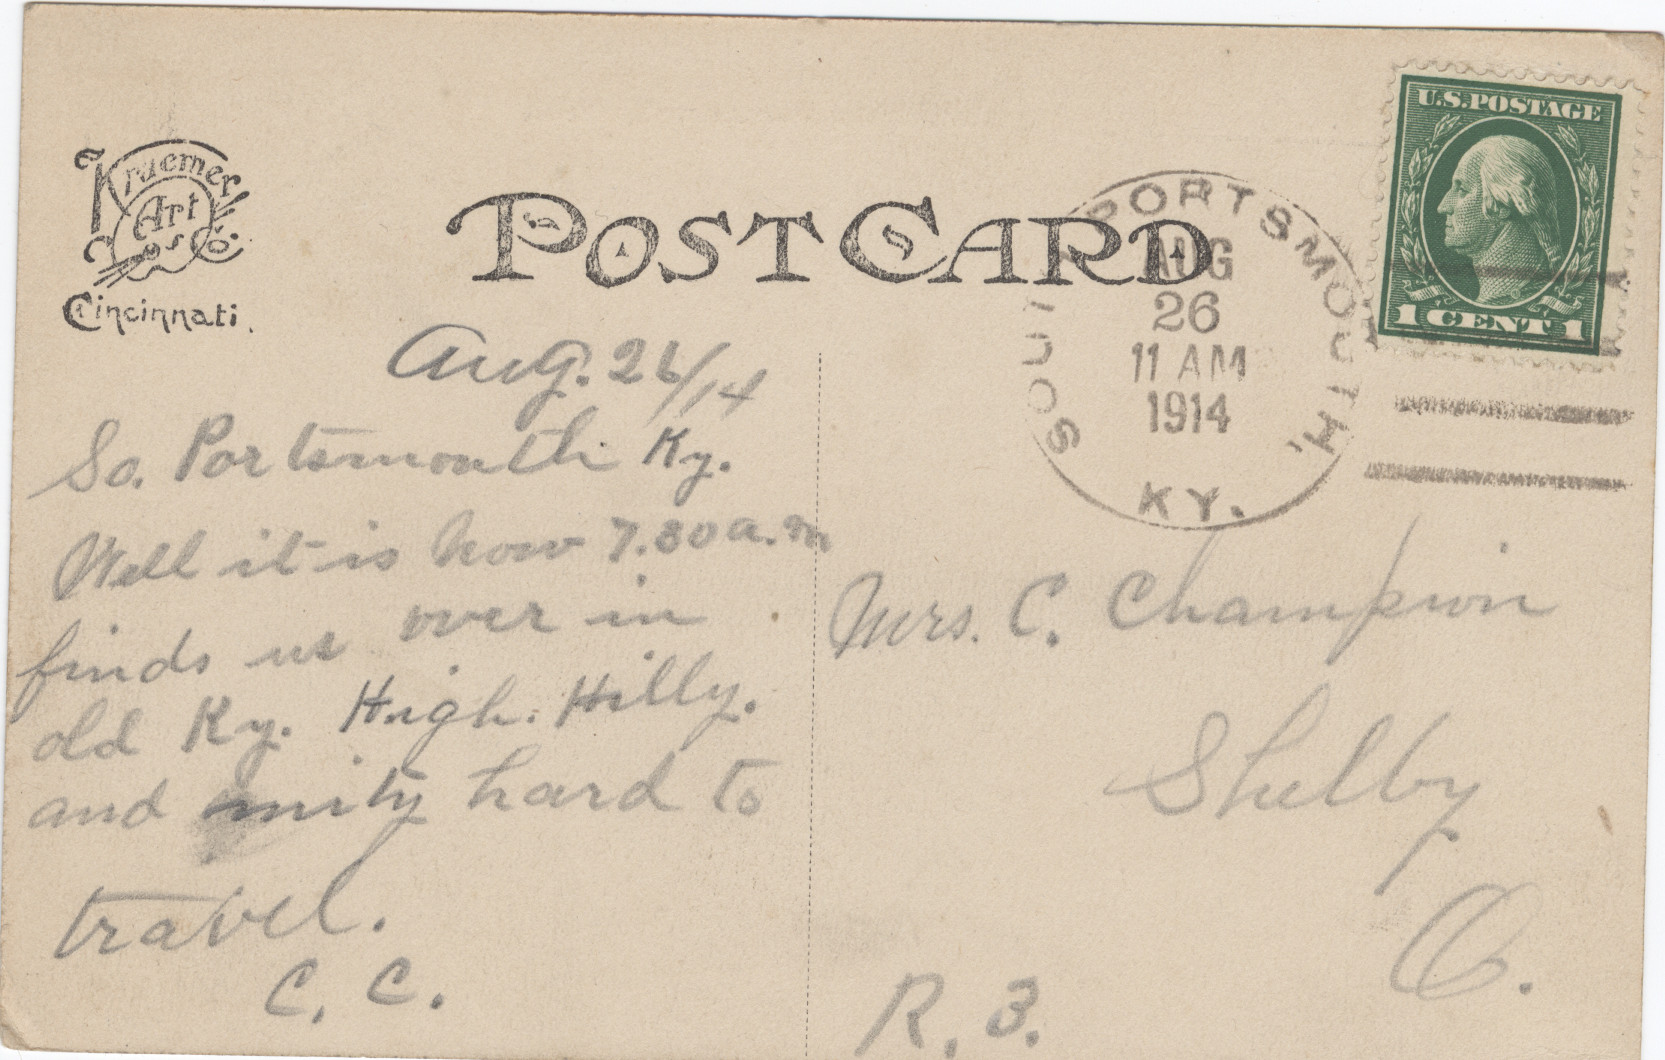 Kraemer
Art
Co.
Cincinnati.
POST CARD
SOUTH PORTSMOUTH,
AUG
26
11 AM
1914
KY.
U.S. POSTAGE
1 CENT 1
Aug. 26/14
So. Portsmouth Ky.
Well it is now 7.30 a.m
finds us over in
old Ky. High. Hilly.
and mity hard to
travel.
C. C.
Mrs. C. Champion
Shelby
O.
R. 3.